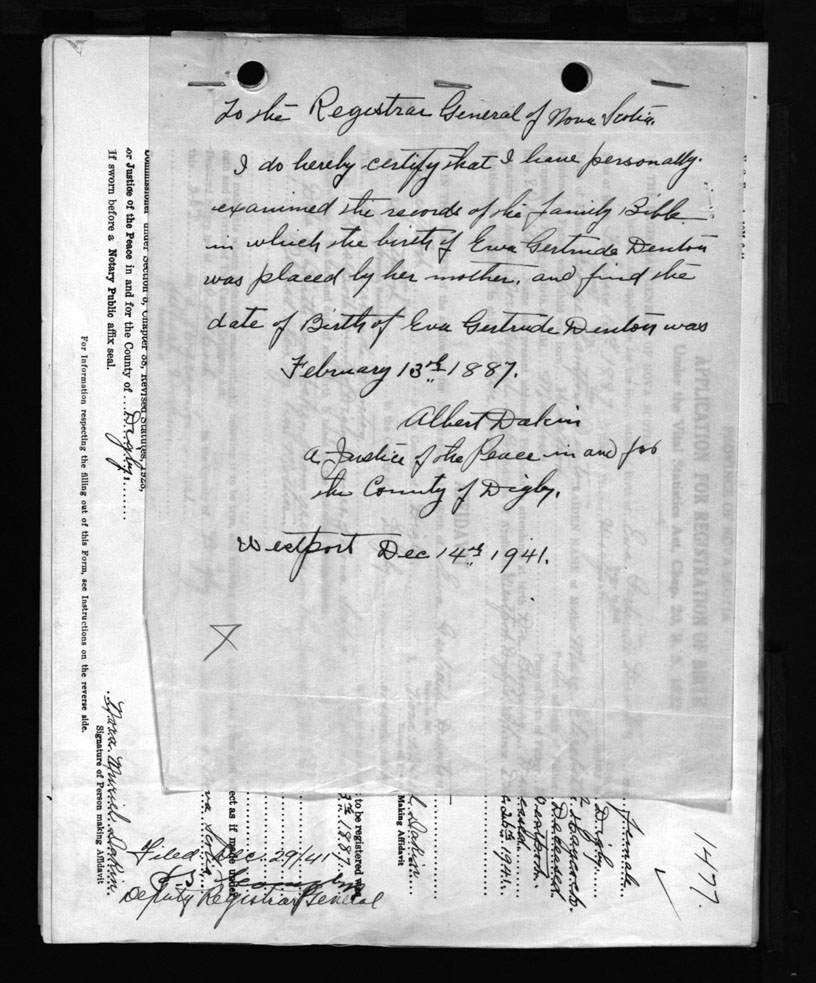 To the Registrar General of Nova Scotia.
I do hereby certify that I have personally
examined the records of the family Bible
in which the birth of Eva Gertrude Denton
was placed by her mother, and find the
date of Birth of Eva Gertrude Denton was
February 13th 1887.
Albert Dakin
A Justice of the Peace in and for
the County of Digby.
Westport Dec 14th 1941.
Commissioner under Section 8, Chapter 38, Revised Statutes, 1923,
or Justice of the Peace in and for the County of ...Digby......
If sworn before a Notary Public affix seal.
For Information respecting the filling out of this Form, see Instructions on the reverse side.
Muriel Dakin.
Signature of Person making Affidavit
ect as if made under
to be registered was
3th 1887.
Dakin
Making Affidavit
1941.
Westport.
Deceased.
Digby
Female
1477.
Filed Dec. 29/41
Deputy Registrar General
APPLICATION FOR REGISTRATION OF BIRTH